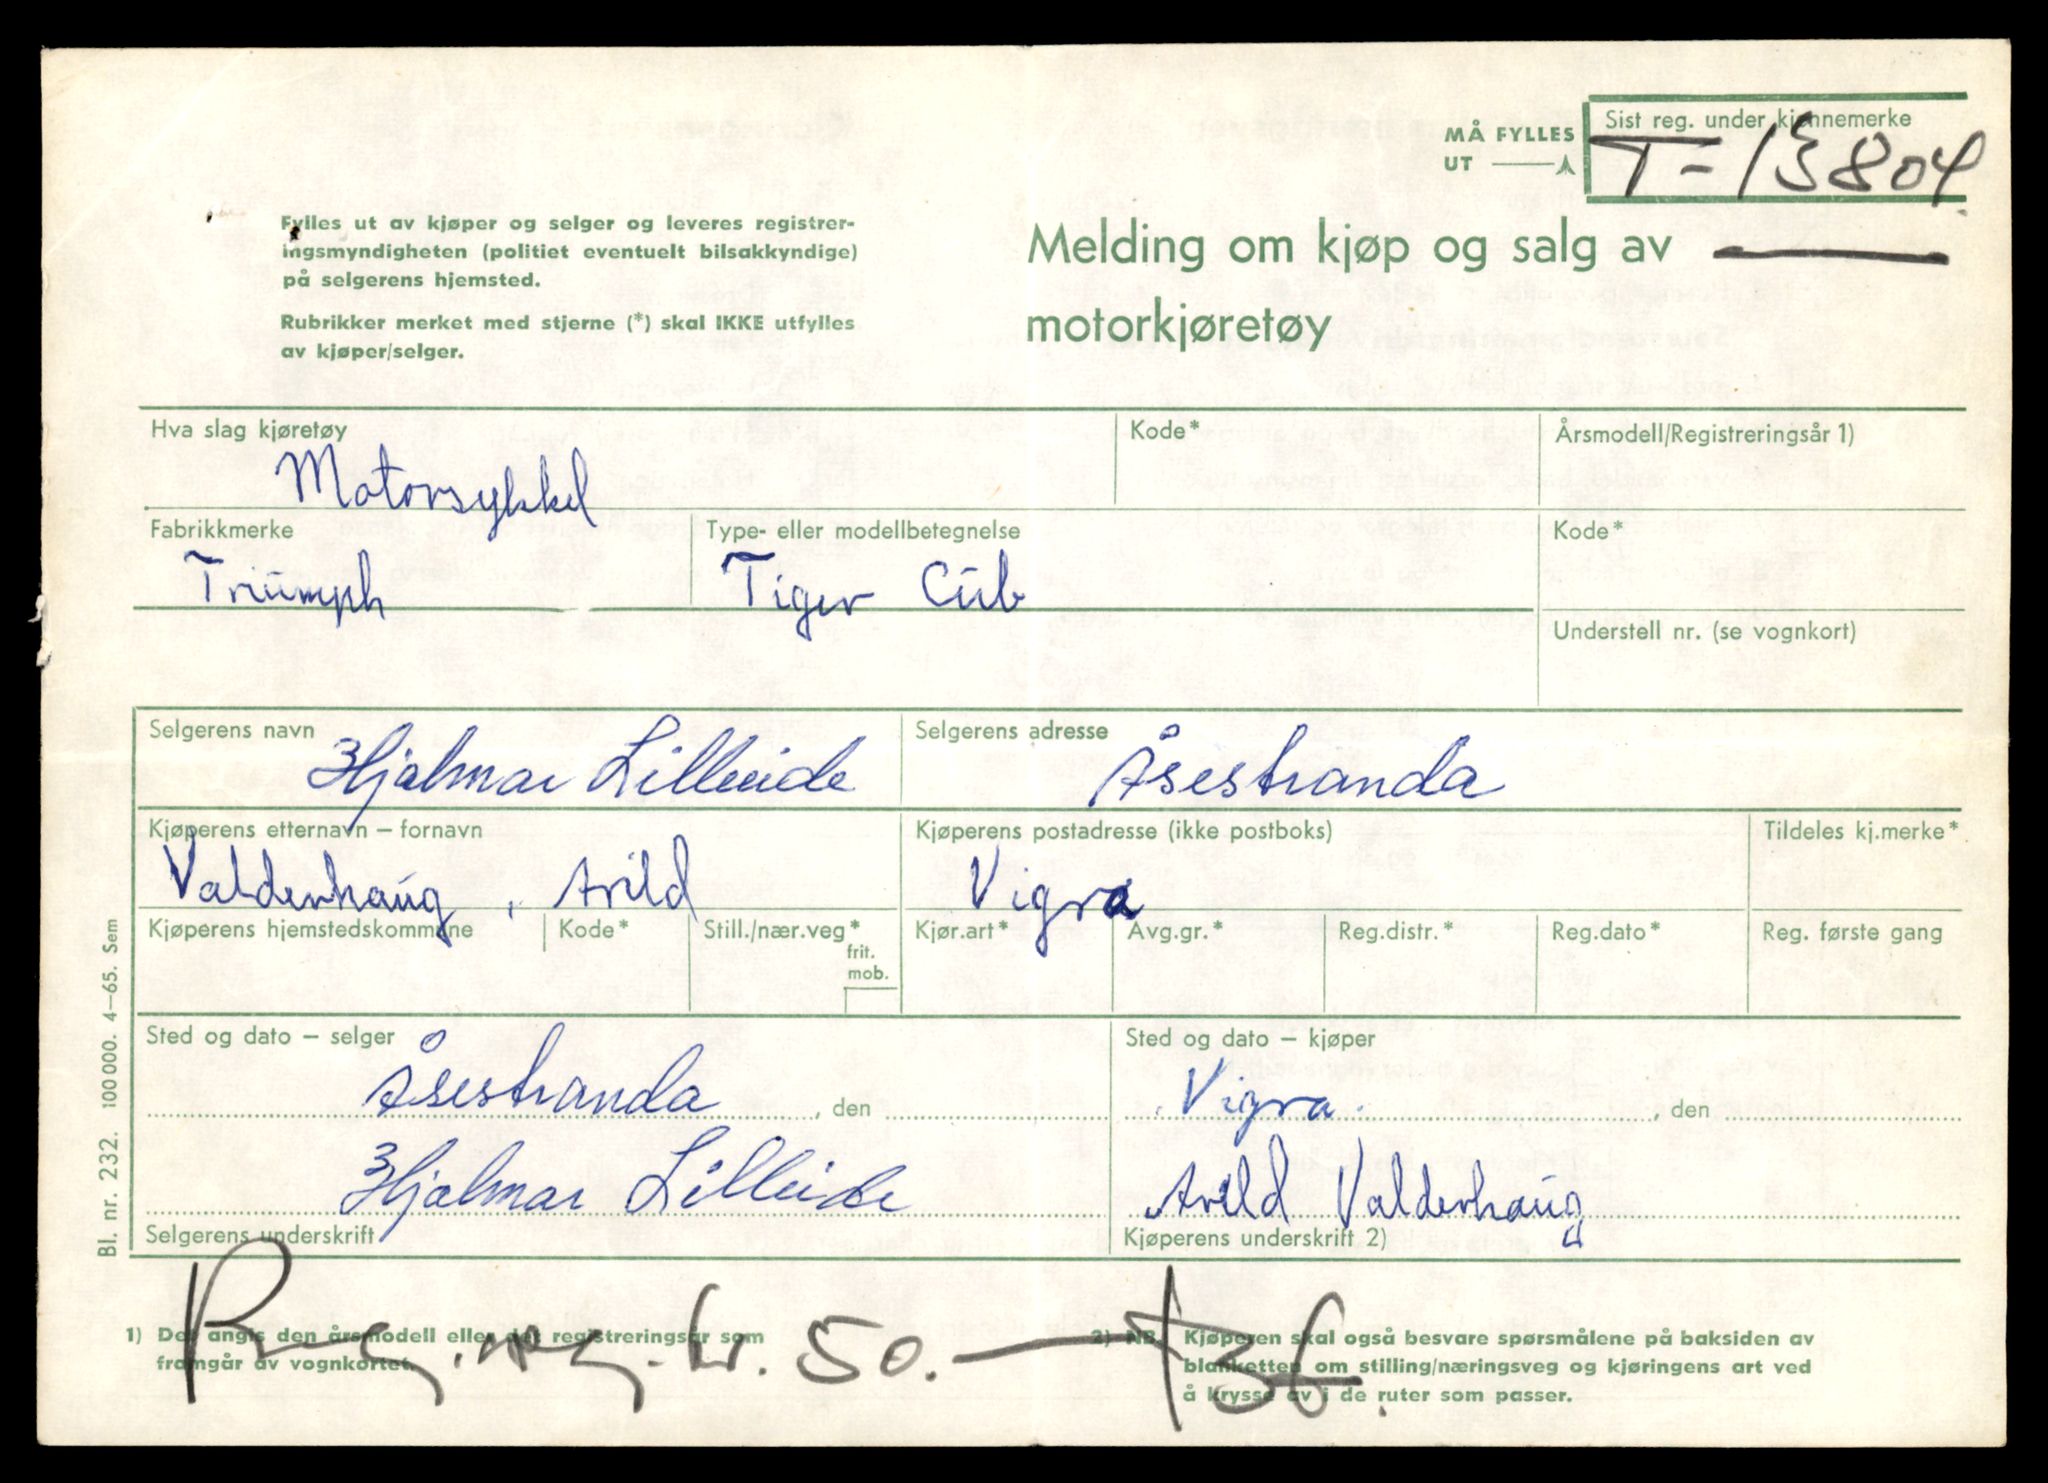 MÅ FYLLES
UT
Sist reg. under kjennemerke
T-13804
Fylles ut av kjøper og selger og leveres registrer-
ingsmyndigheten (politiet eventuelt bilsakkyndige)
på selgerens hjemsted.
Rubrikker merket med stjerne (*) skal IKKE utfylles
av kjøper/selger.
Melding om kjøp og salg av
motorkjøretøy
Hva slag kjøretøy
Kode*
Årsmodell/Registreringsår 1)
Motorsykkel
Fabrikkmerke
Type- eller modellbetegnelse
Kode*
Triumph
Tiger Cub
Understell nr. (se vognkort)
Selgerens navn
Hjalmar Lilleeide
Selgerens adresse
Åsestranda
Kjøperens etternavn – fornavn
Valderhaug, Arild
Kjøperens postadresse (ikke postboks)
Vigra
Tildeles kj.merke*
Kjøperens hjemstedskommune
Kode*
Still./nær.veg*
frit.
mob.
Kjør.art*
Avg.gr.*
Reg.distr.*
Reg.dato*
Reg. første gang
Sted og dato – selger
Åsestranda , den
Hjalmar Lilleeide
Selgerens underskrift
Sted og dato – kjøper
Vigra. , den
Arild Valderhaug
Kjøperens underskrift 2)
Bl. nr. 232. 100 000. 4–65. Sem
kr. 50.—
1) Det angis den årsmodell eller det registreringsår som
framgår av vognkortet.
2) NB. Kjøperen skal også besvare spørsmålene på baksiden av
blanketten om stilling/næringsveg og kjøringens art ved
å krysse av i de ruter som passer.